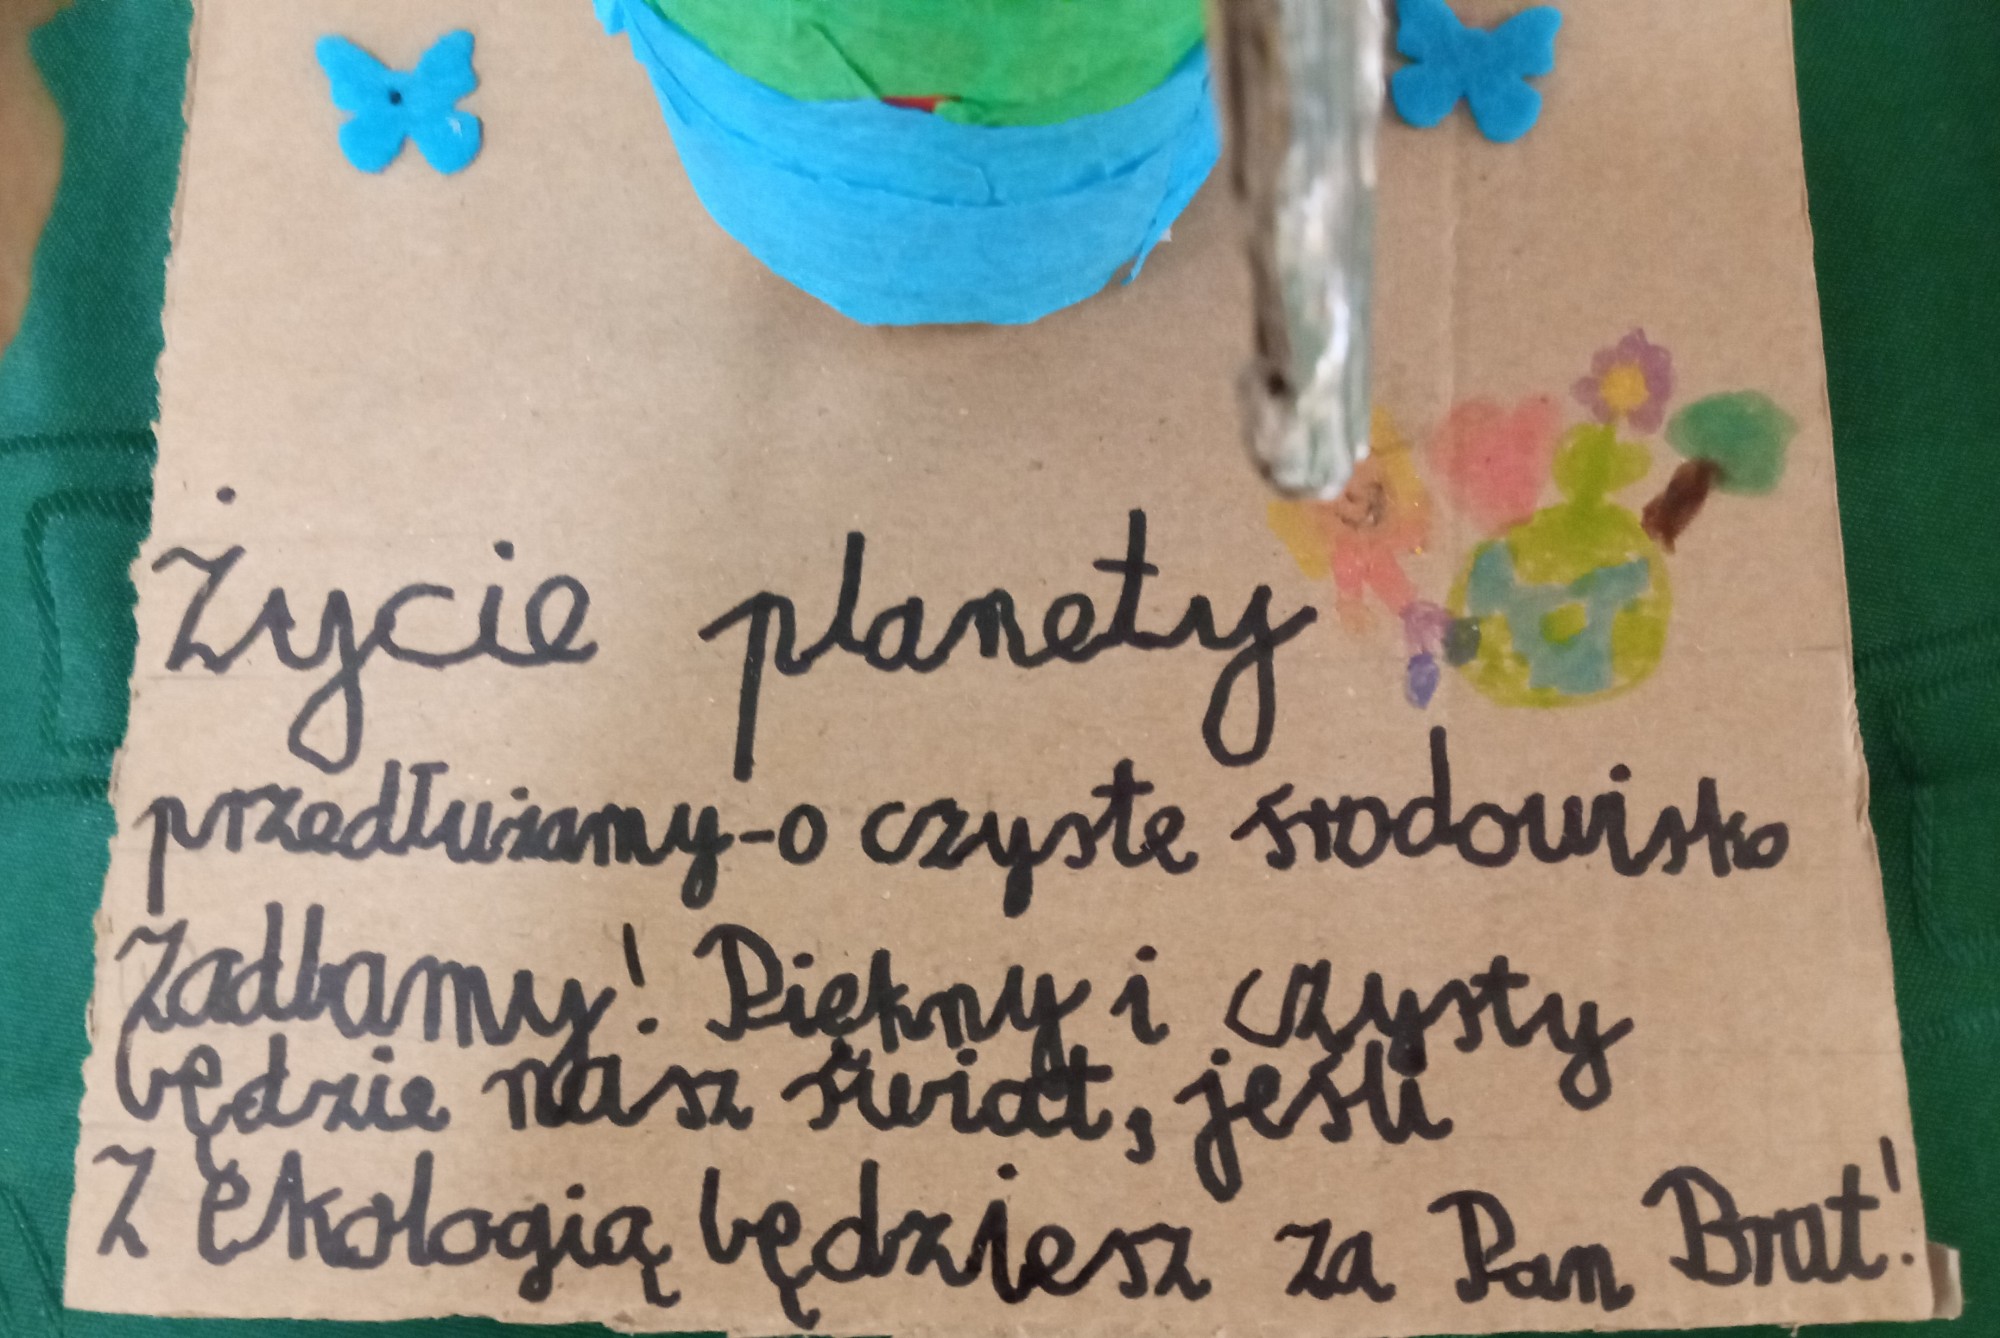 Życie planety
przedłużamy-o czyste środowisko
Zadbamy! Piękny i czysty
będzie nasz świat, jeśli
Z ekologią będziesz za Pan Brat!